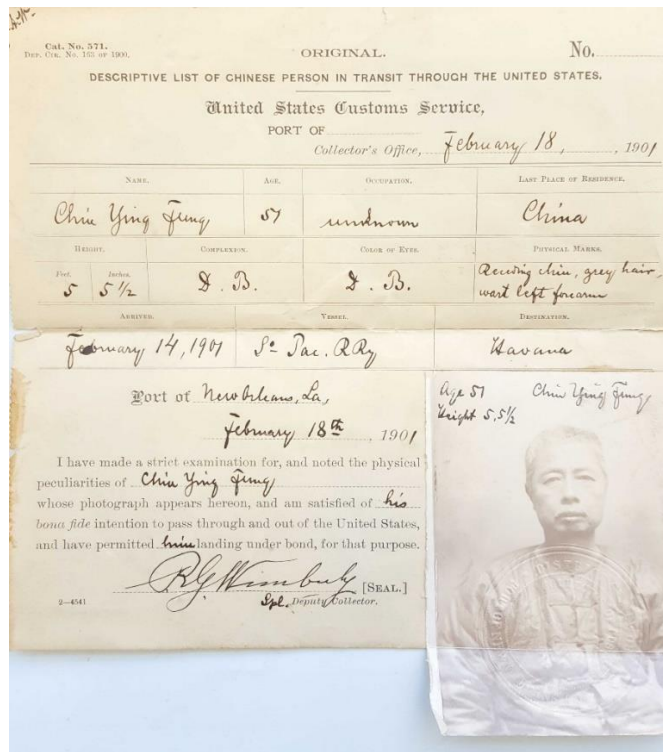 Cat. No. 571.
Dep. Cir. No. 165 of 1900.
ORIGINAL.
No.
DESCRIPTIVE LIST OF CHINESE PERSON IN TRANSIT THROUGH THE UNITED STATES.
United States Customs Service,
PORT OF
Collector's Office, February 18, , 1901
NAME. AGE. OCCUPATION. LAST PLACE OF RESIDENCE.
Chin Ying Fung 51 unknown China
HEIGHT. COMPLEXION. COLOR OF EYES. PHYSICAL MARKS.
Feet. Inches.
5 5 1/2 D. B. D. B. Receding chin, grey hair,
wart left forearm
ARRIVED. VESSEL. DESTINATION.
February 14, 1901 So Pac. R Ry Havana
Port of New Orleans, La,
February 18th , 1901
I have made a strict examination for, and noted the physical
peculiarities of Chin Ying Fung
whose photograph appears hereon, and am satisfied of his
bona fide intention to pass through and out of the United States,
and have permitted him landing under bond, for that purpose.
[SEAL.]
2—4541 Spl. Deputy Collector.
Age 51 Chin Ying Fung
Height 5, 5 1/2